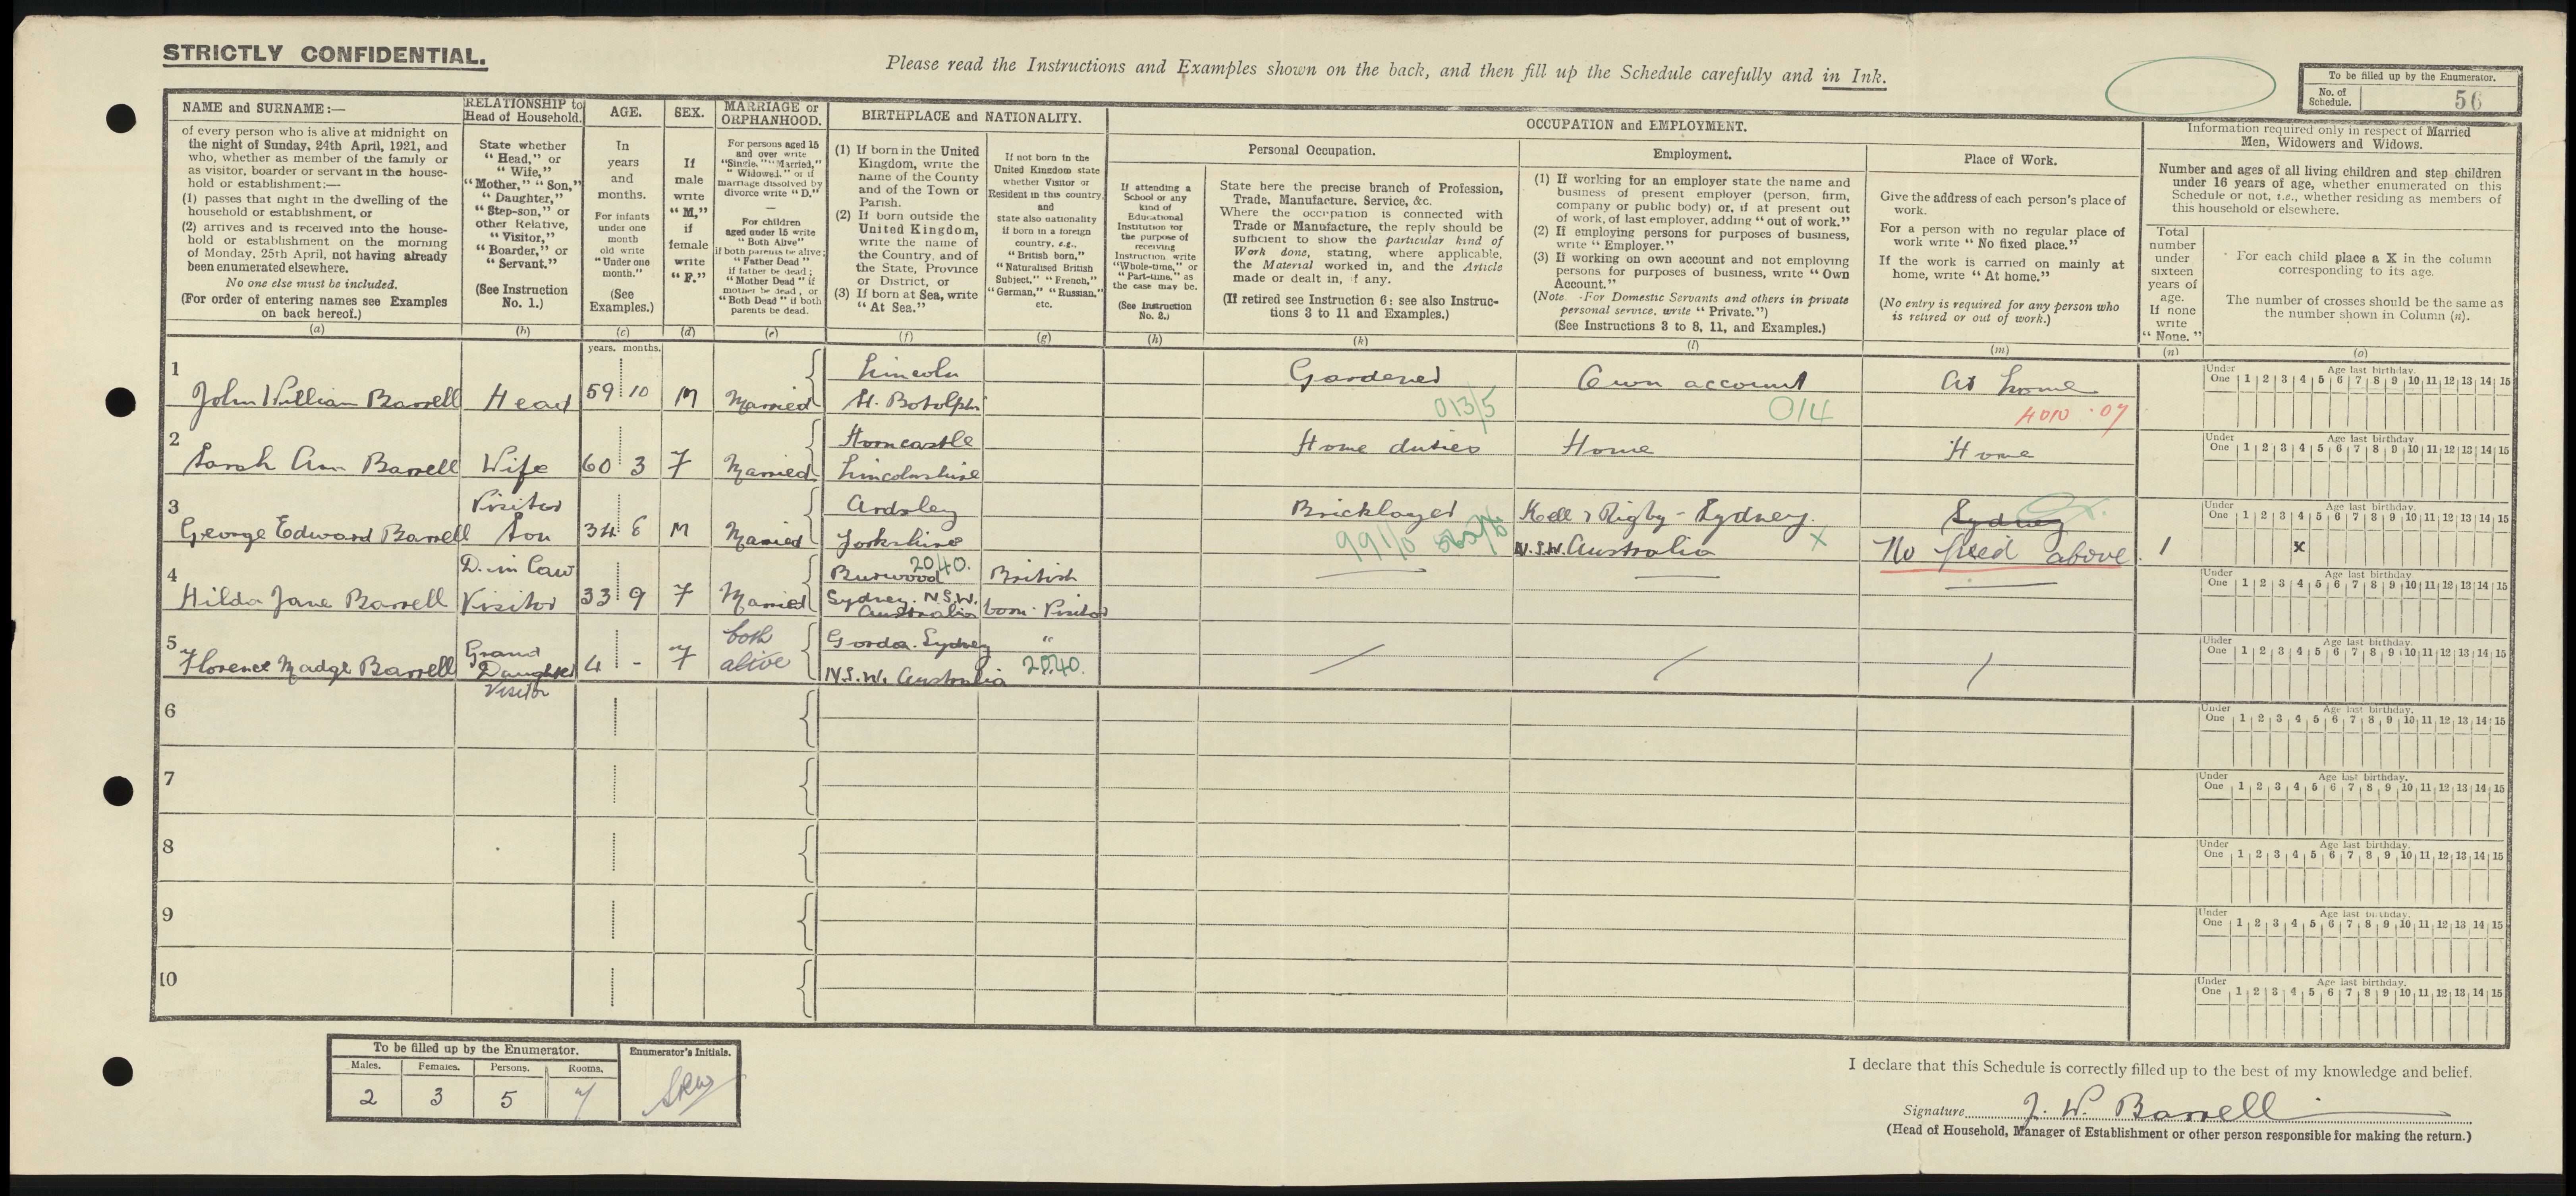 STRICTLY CONFIDENTIAL.
Please read the Instructions and Examples shown on the back, and then fill up the Schedule carefully and in Ink.
To be filled up by the Enumerator.
No. of Schedule. 56
NAME and SURNAME:—
of every person who is alive at midnight on
the night of Sunday, 24th April, 1921, and
who, whether as member of the family or
as visitor, boarder or servant in the house-
hold or establishment:—
(1) passes that night in the dwelling of the
household or establishment, or
(2) arrives and is received into the house-
hold or establishment on the morning
of Monday, 25th April, not having already
been enumerated elsewhere.
No one else must be included.
(For order of entering names see Examples
on back hereof.)
(a)
RELATIONSHIP to
Head of Household.
State whether
"Head," or
"Wife,"
"Mother," "Son,"
"Daughter,"
"Step-son," or
other Relative,
"Visitor,"
"Boarder," or
"Servant."
(See Instruction
No. 1.)
(b)
AGE.
In
years
and
months.
For infants
under one
month
old write
"Under one
month."
(See
Examples.)
(c)
SEX.
If
male
write
"M,"
if
female
write
"F."
(d)
MARRIAGE or
ORPHANHOOD.
For persons aged 15
and over write
"Single," "Married,"
"Widowed," or if
marriage dissolved by
divorce write "D."
—
For children
aged under 15 write
"Both Alive"
if both parents be alive;
"Father Dead"
if father be dead;
"Mother Dead" if
mother be dead, or
"Both Dead" if both
parents be dead.
(e)
BIRTHPLACE and NATIONALITY.
(1) If born in the United
Kingdom, write the
name of the County
and of the Town or
Parish.
(2) If born outside the
United Kingdom,
write the name of
the Country, and of
the State, Province
or District, or
(3) If born at Sea, write
"At Sea."
(f)
If not born in the
United Kingdom state
whether Visitor or
Resident in this country,
and
state also nationality
if born in a foreign
country, e.g.,
"British born,"
"Naturalised British
Subject," "French,"
"German," "Russian,"
etc.
(g)
OCCUPATION and EMPLOYMENT.
Personal Occupation.
If attending a
School or any
kind of
Educational
Institution for
the purpose of
receiving
Instruction write
"Whole-time," or
"Part-time," as
the case may be.
(See Instruction
No. 2.)
(h)
State here the precise branch of Profession,
Trade, Manufacture, Service, &c.
Where the occupation is connected with
Trade or Manufacture, the reply should be
sufficient to show the particular kind of
Work done, stating, where applicable,
the Material worked in, and the Article
made or dealt in, if any.
(If retired see Instruction 6: see also Instruc-
tions 3 to 11 and Examples.)
(k)
Employment.
(1) If working for an employer state the name and
business of present employer (person, firm,
company or public body) or, if at present out
of work, of last employer, adding "out of work."
(2) If employing persons for purposes of business,
write "Employer."
(3) If working on own account and not employing
persons for purposes of business, write "Own
Account."
(Note.-For Domestic Servants and others in private
personal service, write "Private.")
(See Instructions 3 to 8, 11, and Examples.)
(l)
Place of Work.
Give the address of each person's place of
work.
For a person with no regular place of
work write "No fixed place."
If the work is carried on mainly at
home, write "At home."
(No entry is required for any person who
is retired or out of work.)
(m)
Information required only in respect of Married
Men, Widowers and Widows.
Number and ages of all living children and step children
under 16 years of age, whether enumerated on this
Schedule or not, i.e., whether residing as members of
this household or elsewhere.
Total
number
under
sixteen
years of
age.
If none
write
"None."
(n)
For each child place a X in the column
corresponding to its age.
The number of crosses should be the same as
the number shown in Column (n).
(o)
years. months.
1 John William Barrell Head 59 10 M Married Lincoln St. Botolphs Gardener 013/5 Own account 014 At home 4010 .07
Under One Age last birthday. 1 2 3 4 5 6 7 8 9 10 11 12 13 14 15
2 Sarah Ann Barrell Wife 60 3 F Married Horncastle Lincolnshire Home duties Home Home
Under One Age last birthday. 1 2 3 4 5 6 7 8 9 10 11 12 13 14 15
3 George Edward Barrell Visitor Son 34 6 M Married Ardsley Yorkshire Bricklayer 991/0 Kell & Rigby - Sydney. N.S.W. Australia X Sydney No fixed above 1 x
Under One Age last birthday. 1 2 3 4 5 6 7 8 9 10 11 12 13 14 15
4 Hilda Jane Barrell D. in law Visitor 33 9 F Married 2040. Burwood Sydney. N.S.W. Australia British born. Visitor
Under One Age last birthday. 1 2 3 4 5 6 7 8 9 10 11 12 13 14 15
5 Florence Madge Barrell Grand Daughter Visitor 4 - F both alive Gordon. Sydney N.S.W. Australia " 2040.
Under One Age last birthday. 1 2 3 4 5 6 7 8 9 10 11 12 13 14 15
6
Under One Age last birthday. 1 2 3 4 5 6 7 8 9 10 11 12 13 14 15
7
Under One Age last birthday. 1 2 3 4 5 6 7 8 9 10 11 12 13 14 15
8
Under One Age last birthday. 1 2 3 4 5 6 7 8 9 10 11 12 13 14 15
9
Under One Age last birthday. 1 2 3 4 5 6 7 8 9 10 11 12 13 14 15
10
Under One Age last birthday. 1 2 3 4 5 6 7 8 9 10 11 12 13 14 15
To be filled up by the Enumerator.
Males. Females. Persons. Rooms.
2 3 5 7
Enumerator's Initials.
I declare that this Schedule is correctly filled up to the best of my knowledge and belief.
Signature J. W. Barrell
(Head of Household, Manager of Establishment or other person responsible for making the return.)